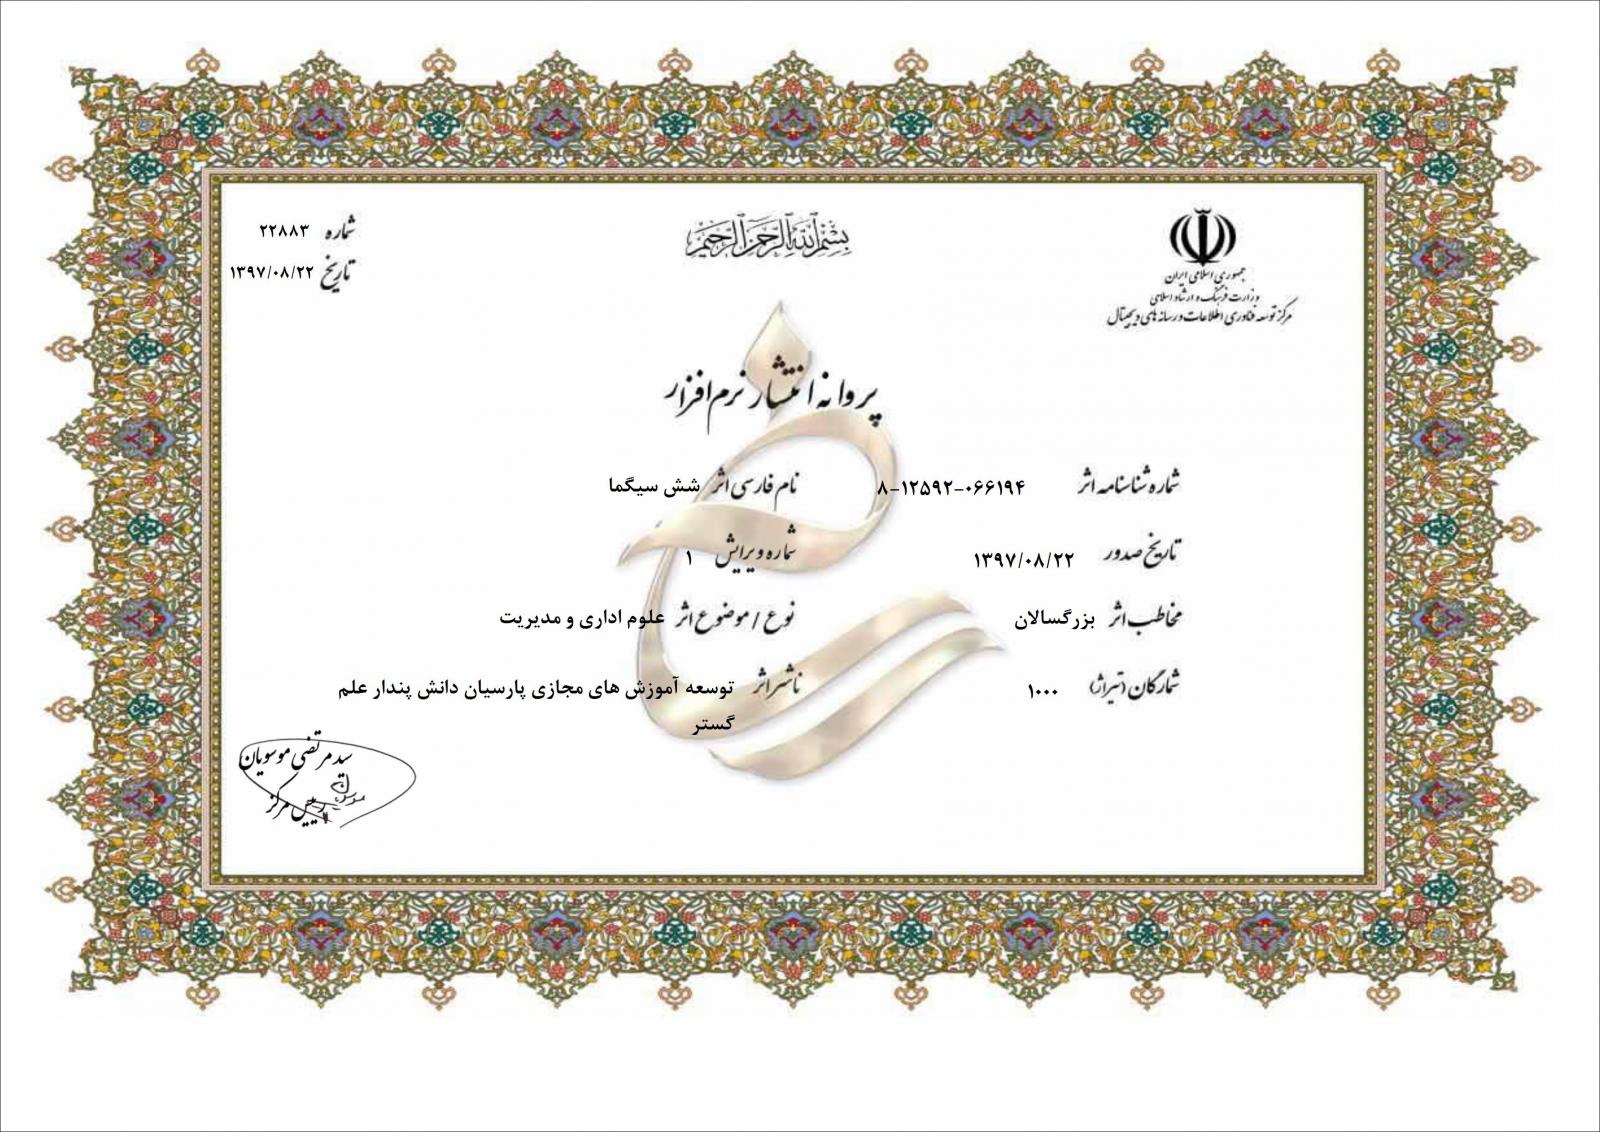 بسم الله الرحمن الرحیم
جمهوری اسلامی ایران
وزارت فرهنگ و ارشاد اسلامی
مرکز توسعه فناوری اطلاعات و رسانه های دیجیتال
شماره ۲۲۸۸۳
تاریخ ۱۳۹۷/۰۸/۲۲
پروانه انتشار نرم افزار
شماره شناسنامه اثر ۸-۱۲۵۹۲-۰۶۶۱۹۴ نام فارسی اثر شش سیگما
تاریخ صدور ۱۳۹۷/۰۸/۲۲ شماره ویرایش ۱
مخاطب اثر بزرگسالان نوع / موضوع اثر علوم اداری و مدیریت
شمارگان (تیراژ) ۱۰۰۰ ناشر اثر توسعه آموزش های مجازی پارسیان دانش پندار علم
گستر
سید مرتضی موسویان
رییس مرکز